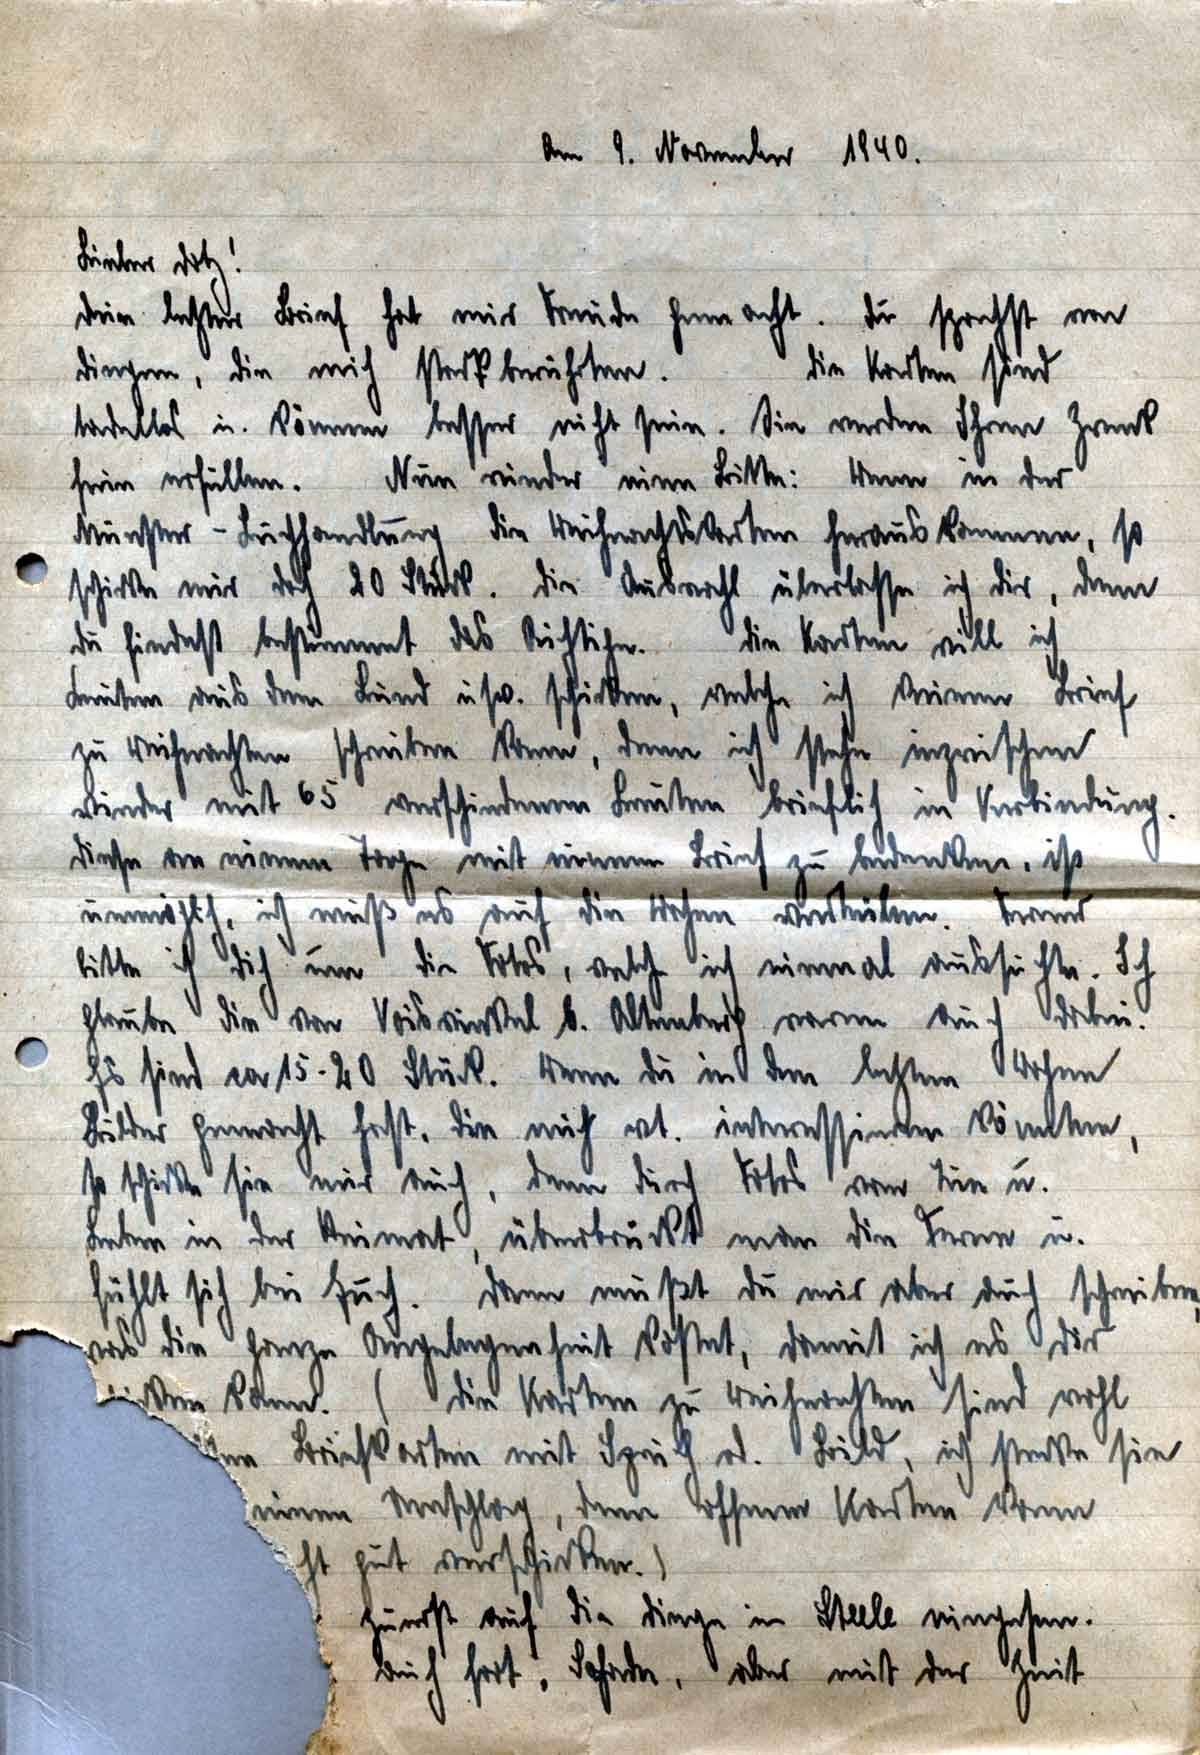 Am 9. November 1940.
Lieber Dotz!
Dein letzter Brief hat mir Freude gemacht. Du sprachst von
Dingen, die mich stark berührten. Die Karten sind
tadellos u. können besser nicht sein. Sie werden Ihren Zweck
fein erfüllen. Nun wieder eine Bitte: Wenn in der
Münster-Buchhandlung die Weihnachtskarten herauskommen, so
schicke mir doch 20 Stück. Die Auswahl überlasse ich Dir, denn
Du findest bestimmt das Richtige. Die Karten will ich
Leuten aus dem Bund usw. schicken, welche ich keinen Brief
zu Weihnachten schreiben kann, denn ich stehe inzwischen
wieder mit 65 verschiedenen Leuten brieflich in Verbindung.
Diese an einem Tage mit einem Brief zu bedenken, ist
unmöglich, ich muß es auf die Wochen verteilen. Ferner
bitte ich Dich um die Fotos, welche ich einmal aussuchte. Ich
glaube die von Voiswinkel b. Altenberg waren auch dabei.
Es sind ca 15-20 Stück. Wenn Du in den letzten Wochen
Bilder gemacht hast, die mich evt. interessieren könnten,
so schicke sie mir auch, denn durch Fotos vom Tun u.
Leben in der Heimat, überbrückt man die Ferne u.
fühlt sich bei Euch. Dann mußt Du mir aber auch schreiben,
was die ganze Angelegenheit kostet, damit ich es Dir
schicken kann. (Die Karten zu Weihnachten sind wohl
Briefkarten mit Spruch od. Bild, ich stecke sie
einen Umschlag, denn offene Karten kann
gut verschicken.)
zuerst auf die Dinge in Steele eingehen.
auch fort, Schade, aber mit der Zeit